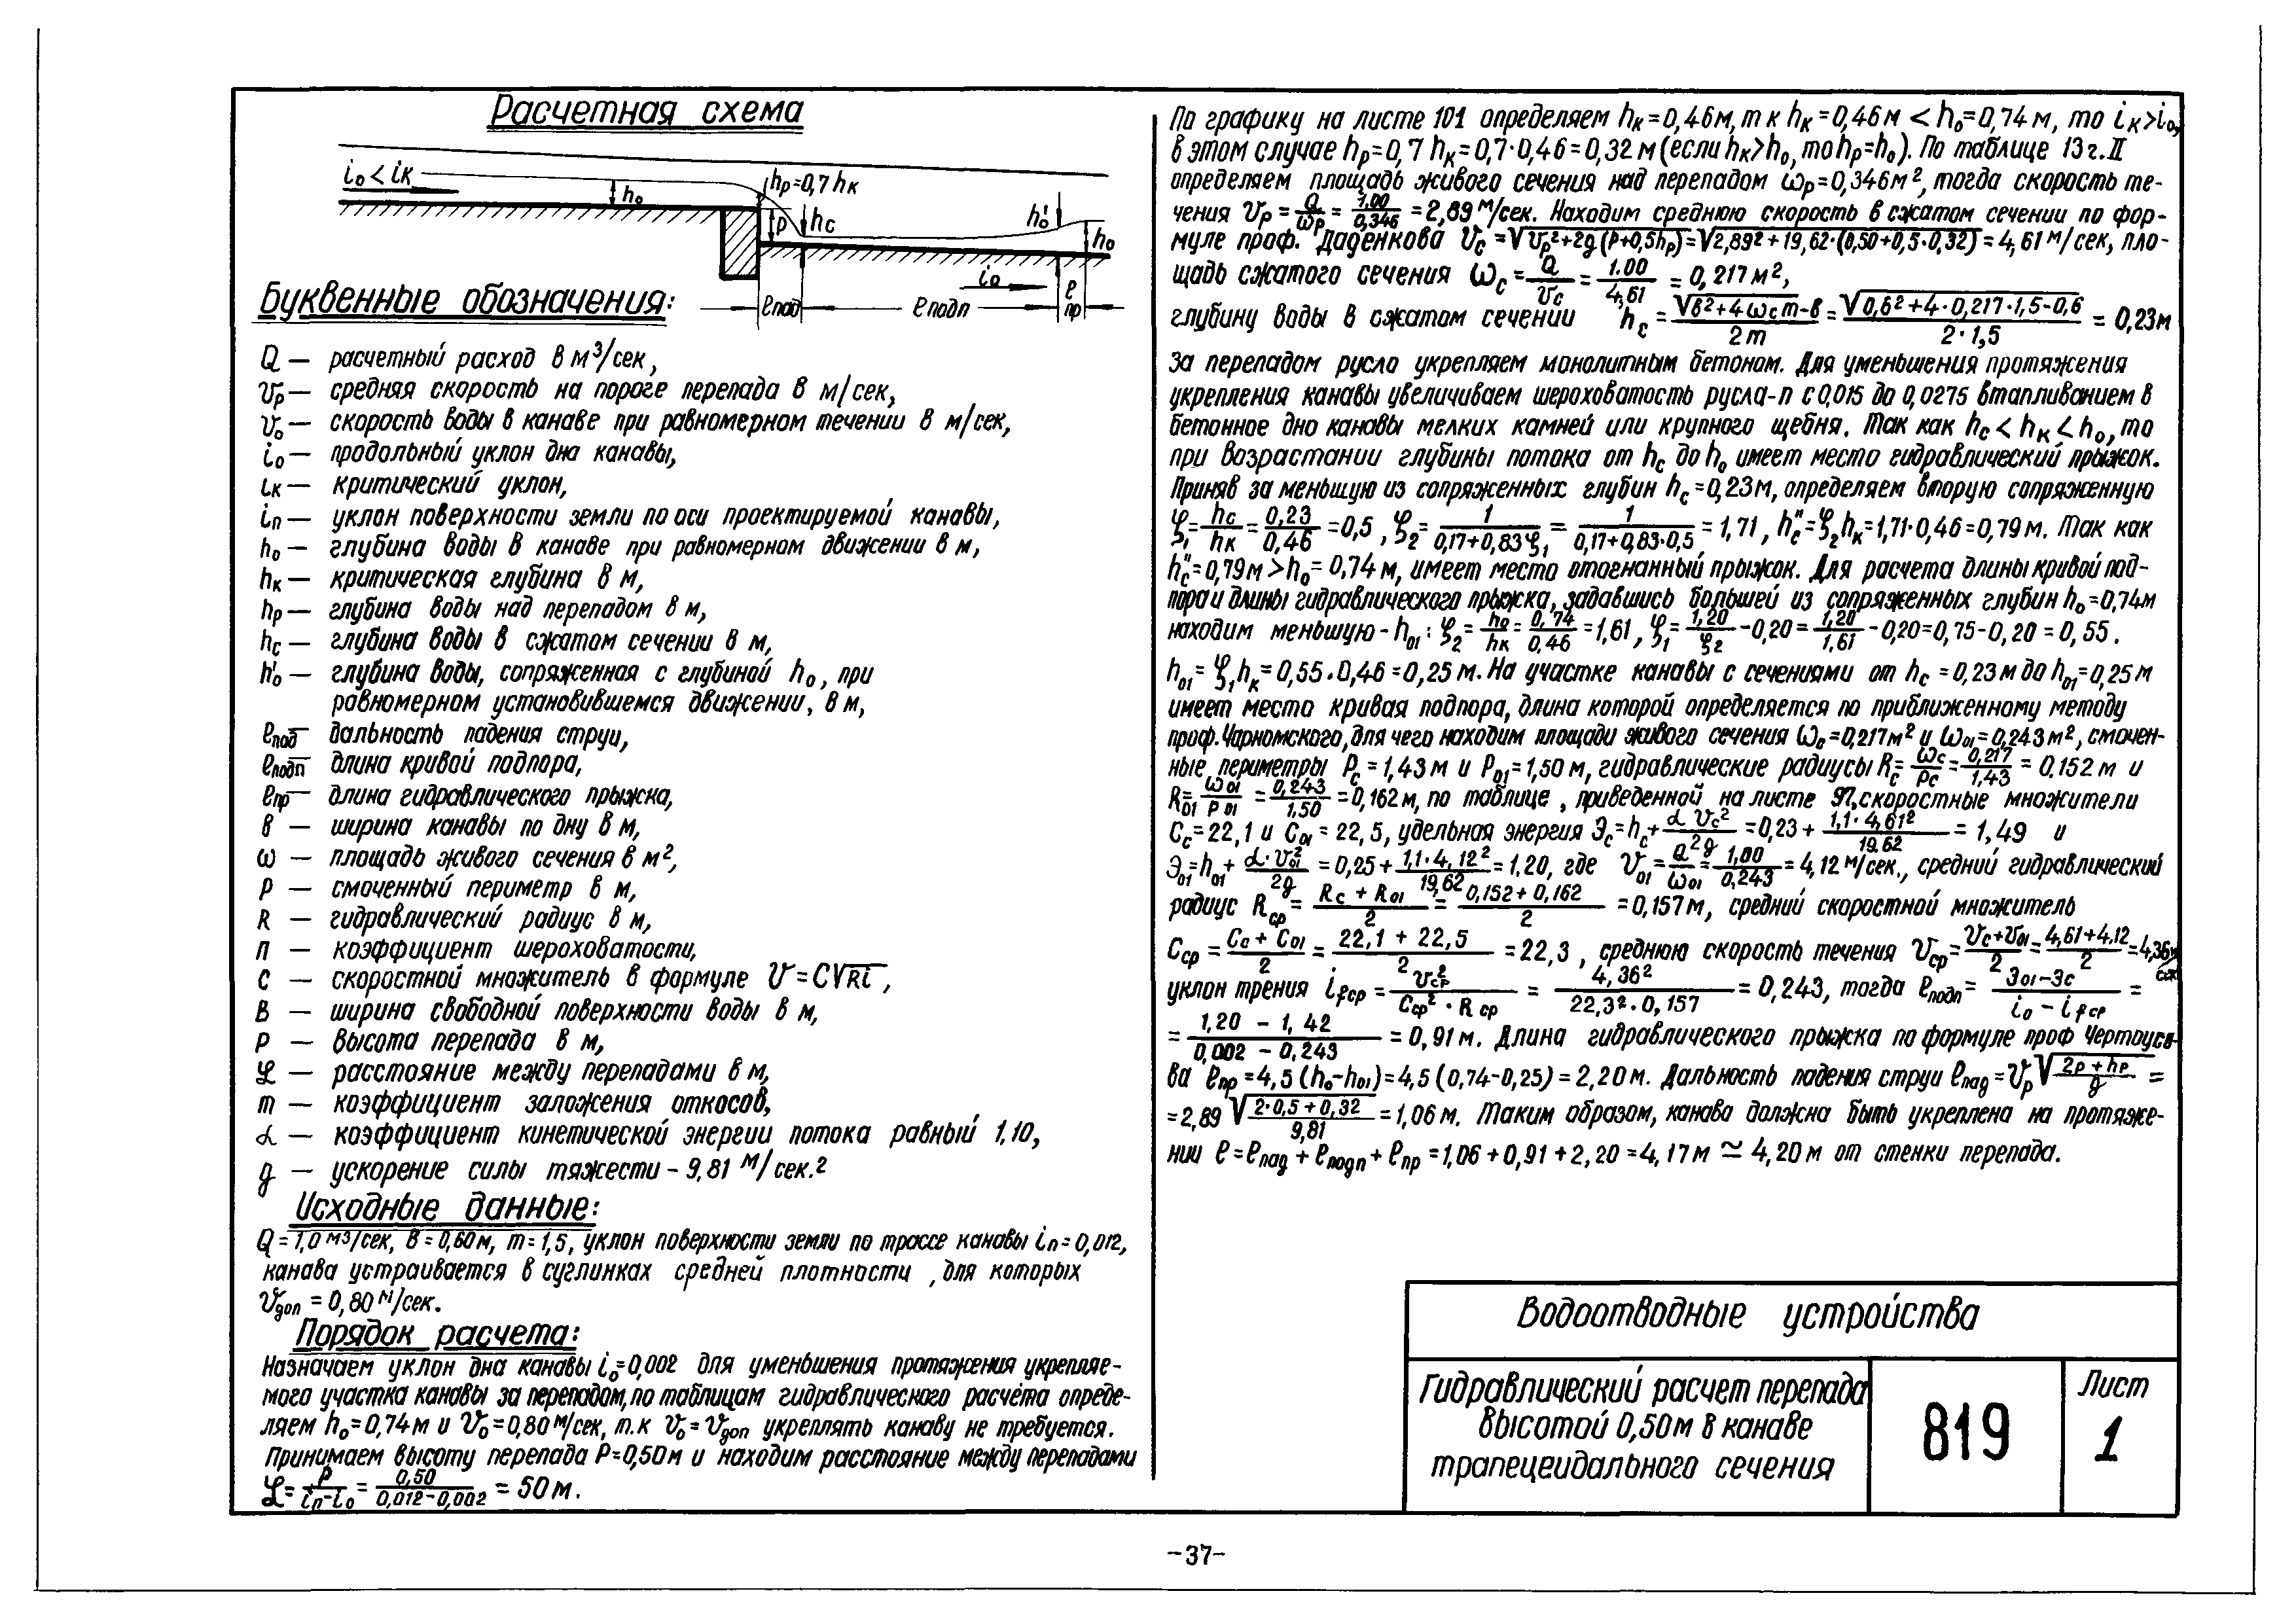 Расчетная схема
i₀ < iк
h₀
hр=0,7hк
P
hс
h₀'
h₀
i₀
ℓпад
ℓподп
ℓпр
Буквенные обозначения:
Q — расчетный расход в м³/сек,
𝒱р — средняя скорость на пороге перепада в м/сек,
𝒱₀ — скорость воды в канаве при равномерном течении в м/сек,
i₀ — продольный уклон дна канавы,
iк — критический уклон,
iп — уклон поверхности земли по оси проектируемой канавы,
h₀ — глубина воды в канаве при равномерном движении в м,
hк — критическая глубина в м,
hр — глубина воды над перепадом в м,
hс — глубина воды в сжатом сечении в м,
h₀' — глубина воды, сопряженная с глубиной h₀, при
равномерном установившемся движении, в м,
ℓпад — дальность падения струи,
ℓподп — длина кривой подпора,
ℓпр — длина гидравлического прыжка,
в — ширина канавы по дну в м,
ω — площадь живого сечения в м²,
Р — смоченный периметр в м,
R — гидравлический радиус в м,
п — коэффициент шероховатости,
С — скоростной множитель в формуле 𝒱=С√Ri,
В — ширина свободной поверхности воды в м,
Р — высота перепада в м,
ℒ — расстояние между перепадами в м,
m — коэффициент заложения откосов,
α — коэффициент кинетической энергии потока равный 1,10,
g — ускорение силы тяжести - 9,81 м/сек.²
Исходные данные:
Q=1,0 м³/сек, в=0,60м, m=1,5, уклон поверхности земли по трассе канавы iп=0,012,
канава устраивается в суглинках средней плотности, для которых
𝒱доп = 0,80 м/сек.
Порядок расчета:
Назначаем уклон дна канавы i₀=0,002 для уменьшения протяжения укрепляе-
мого участка канавы за перепадом, по таблицам гидравлического расчёта опреде-
ляем h₀=0,74м и 𝒱₀=0,80 м/сек, т.к 𝒱₀=𝒱доп укреплять канаву не требуется.
Принимаем высоту перепада Р=0,50м и находим расстояние между перепадами
ℒ= Р/(iп-i₀) = 0,50/(0,012-0,002) = 50м.
По графику на листе 101 определяем hк=0,46м, т к hк=0,46м < h₀=0,74м, то iк>i₀,
в этом случае hр=0,7 hк=0,7·0,46=0,32м (если hк>h₀, то hр=h₀). По таблице 13 г. II
определяем площадь живого сечения над перепадом ωр=0,346м², тогда скорость те-
чения 𝒱р = Q/ωр = 1.00/0,346 =2,89 м/сек. Находим среднюю скорость в сжатом сечении по фор-
муле проф. Даденкова 𝒱с =√(𝒱р²+2g(P+0,5hр))=√(2,89²+19,62·(0,50+0,5·0,32))=4,61м/сек, пло-
щадь сжатого сечения ωс = Q/𝒱с = 1.00/4,61 = 0,217м²,
глубину воды в сжатом сечении hс = (√(в²+4ωсm)-в)/2m = (√(0,6²+4·0,217·1,5)-0,6)/(2·1,5) = 0,23м
За перепадом русло укрепляем монолитным бетоном. Для уменьшения протяжения
укрепления канавы увеличиваем шероховатость русла-п с 0,015 до 0,0275 втапливанием в
бетонное дно канавы мелких камней или крупного щебня. Так как hс < hк < h₀, то
при возрастании глубины потока от hс до h₀ имеет место гидравлический прыжок.
Приняв за меньшую из сопряженных глубин hс=0,23м, определяем вторую сопряженную
ξ₁= hс/hк = 0,23/0,46 =0,5, ξ₂= 1/(0,17+0,83ξ₁) = 1/(0,17+0,83·0,5) = 1,71, hс"=ξ₂hк=1,71·0,46=0,79м. Так как
hс"=0,79м > h₀= 0,74м, имеет место отогнанный прыжок. Для расчета длины кривой под-
пора и длины гидравлического прыжка, задавшись большей из сопряженных глубин h₀=0,74м
находим меньшую - h₀₁: ξ₂= h₀/hк = 0,74/0,46 =1,61, ξ₁= 1,20/ξ₂ -0,20= 1,20/1,61 -0,20=0,75-0,20=0,55.
h₀₁= ξ₁hк=0,55·0,46=0,25м. На участке канавы с сечениями от hс =0,23м до h₀₁=0,25м
имеет место кривая подпора, длина которой определяется по приближенному методу
проф. Чарномского, для чего находим площади живого сечения ωс=0,217м² и ω₀₁=0,243м², смочен-
ные периметры Рс=1,43м и Р₀₁=1,50м, гидравлические радиусы Rс= ωс/Рс = 0,217/1,43 = 0.152м и
R₀₁= ω₀₁/Р₀₁ = 0,243/1,50 =0,162м, по таблице, приведенной на листе 97, скоростные множители
Сс=22,1 и С₀₁=22,5, удельная энергия Эс=hс+ α𝒱с²/2g =0,23+ 1,1·4,61²/19.62 = 1,49 и
Э₀₁=h₀₁+ α·𝒱₀₁²/2g =0,25+ 1,1·4,12²/19,62 =1,20, где 𝒱₀₁= Q/ω₀₁ = 1,00/0,243 =4,12м/сек., средний гидравлический
радиус Rср= (Rс + R₀₁)/2 = (0,152+0,162)/2 =0,157м, средний скоростной множитель
Сср = (Сс + С₀₁)/2 = (22,1 + 22,5)/2 =22,3, среднюю скорость течения 𝒱ср= (𝒱с+𝒱₀₁)/2 = (4,61+4.12)/2 =4,36м/сек
уклон трения ifср = 𝒱ср²/(Сср²·Rср) = 4,36²/(22,3²·0,157) = 0,243, тогда ℓподп= (Э₀₁-Эс)/(i₀-ifср) =
= (1,20 - 1,42)/(0,002 - 0,243) = 0,91м. Длина гидравлического прыжка по формуле проф Чертоусо-
ва ℓпр=4,5 (h₀-h₀₁)=4,5(0,74-0,25)=2,20м. Дальность падения струи ℓпад=𝒱р√((2р+hр)/g) =
=2,89 √((2·0,5+0,32)/9,81) =1,06м. Таким образом, канава должна быть укреплена на протяже-
нии ℓ=ℓпад+ℓподп+ℓпр=1,06+0,91+2,20=4,17м ≃ 4,20м от стенки перепада.
Водоотводные устройства
Гидравлический расчет перепада
высотой 0,50м в канаве
трапецеидального сечения
819
Лист
1
-37-